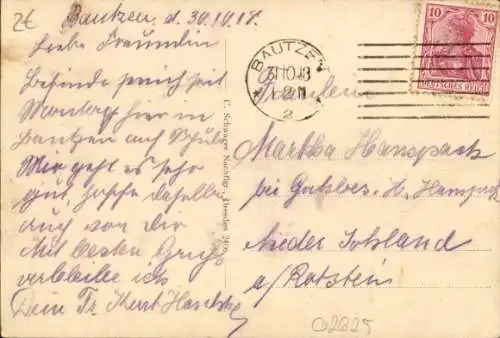 Bautzen, d. 30.10.18.
Liebe Freundin
Befinde mich seit
Montag hier in
Bautzen auf Schule
Mir geht es sehr
gut, hoffe dasselbe
auch von dir
Mit besten Gruß
verbleibe ich
Dein Fr. Kurt
C. Schwager Nachflgr., Dresden
BAUTZEN
31.10.18
2
10 10
DEUTSCHES REICH
Fräulein
Martha Hanspach
bei Gutsbes. H. Hanspach
Nieder Sohland
a/Rotstein
02225